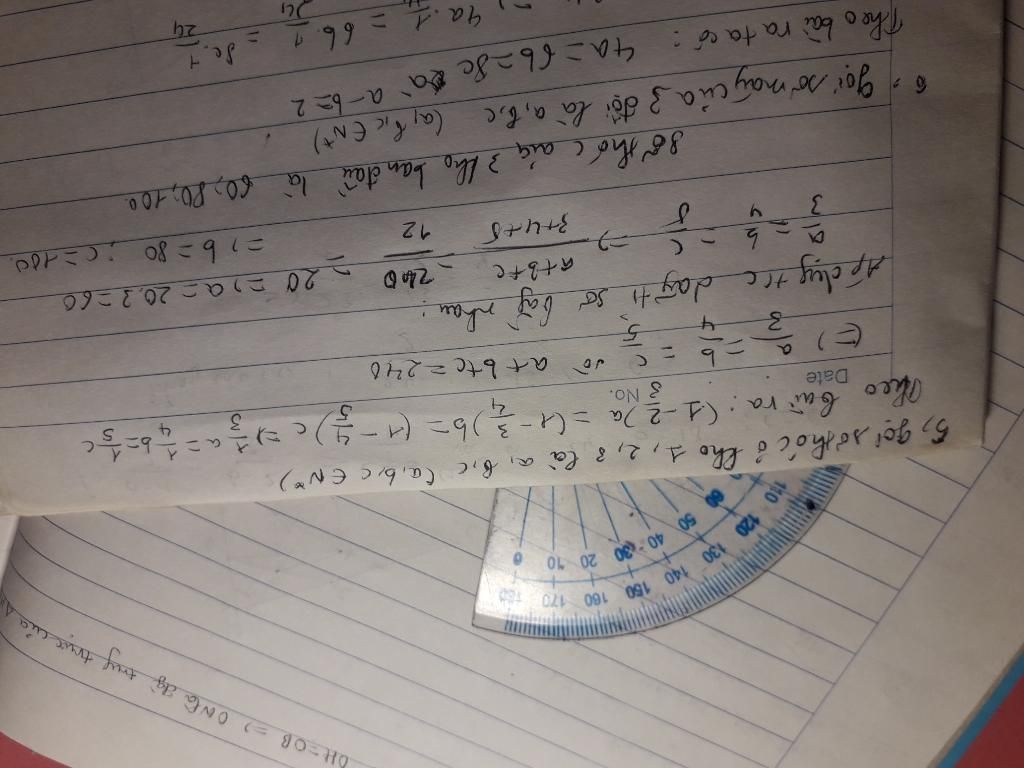 5, gọi số thóc ở kho 1, 2, 3 là a, b, c (a, b, c ∈ N*)
Date No.
Theo bài ra: (1-2/3)a = (1-3/4)b = (1-4/5)c => 1/3 a = 1/4 b = 1/5 c
(=) a/3 = b/4 = c/5 và a+b+c=240
Áp dụng t/c dãy tỉ số bằng nhau:
a/3 = b/4 = c/5 => a+b+c/3+4+5 = 240/12 = 20 => a = 20.3 = 60
=> b = 80 ; c = 100
số thóc của 3 kho ban đầu là 60, 80, 100
6, gọi số máy của 3 đội là a, b, c (a, b, c ∈ N*)
4a = 6b = 8c và a-b=2
Theo bài ra ta có:
4a.1/24 = 6b.1/24 = 8c.1/24
0 10 20 30 40 50 60
180 170 160 150 140 130 120 110
OH=OB => ONG đg trung trực của